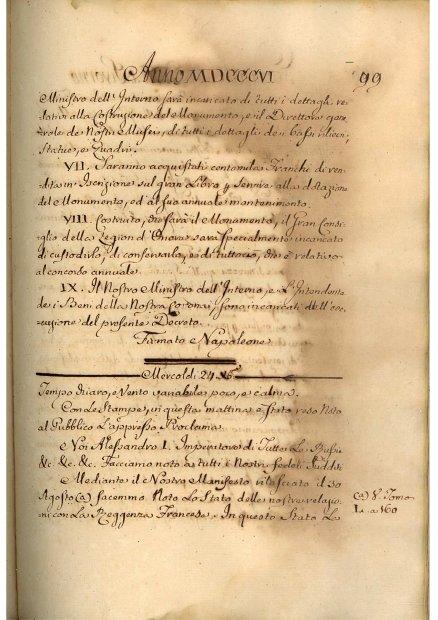 Anno MDCCCVI 99
Ministro dell'Interno sarà incaricato di tutti i dettagli re-
lativi alla Costruzione del Monumento, e il Direttore gene-
rale de Nostri Musei, di tutti i dettagli dei bassi rilievi,
Statue, e Quadri.
VII. Saranno acquistati centomila Franchi di ren-
dita in Iscrizione sul gran Libro p. servire alla dotazione
del Monumento, ed al suo annuale mantenimento.
VIII. Costruito, che sarà il Monumento, il Gran Consi-
glio della Legion d'Onore sarà specialmente incaricato
di custodirlo, di conservarlo, e di tuttociò, che è relativo
al concorso annuale.
IX. Il Nostro Ministro dell'Interno, e l'Intendente
dei Beni della Nostra Corona, sono incaricati dell'ese-
cuzione del presente Decreto.
Firmato = Napoleone
Mercoldì 24
Tempo chiaro, e Vento variabile poco, e calma.
Con le Stampe, in questa mattina è stato reso Noto
al Pubblico l'appresso Proclama.
Noi Alessandro I. Imperatore di Tutte le Russie
&c. &c. &c. Facciamo noto a tutti i Nostri fedeli Sudditi
Mediante il Nostro Manifesto rilasciato il 30
Agosto (a) facemmo Noto lo Stato delle nostre relazio-
ni con la Reggenza Francese. In questo Stato le
(a) V. Tomo
L. a 160